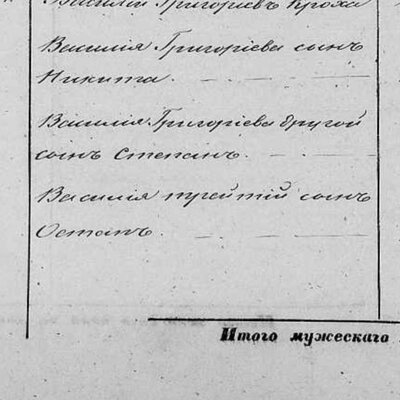 Василій Григорьевъ Кроха
Василія Григоріева сынъ
Никита.
Василія Григоріева другой
сынъ Степанъ.
Василія третій сынъ
Остапъ.
Итого мужескаго